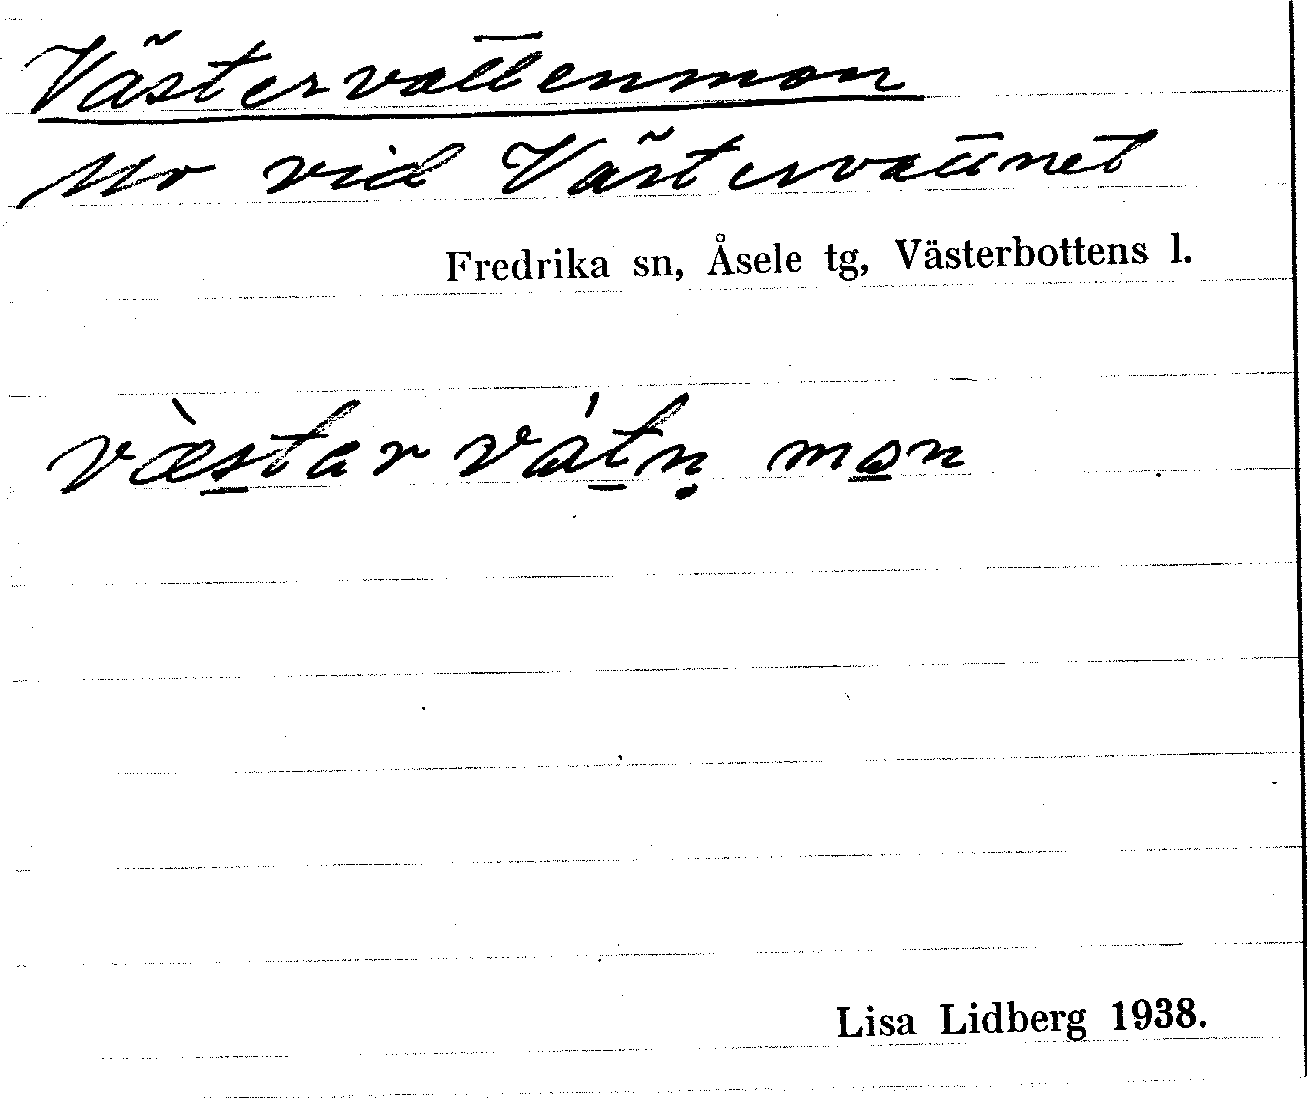 Västervattenmon
Mo vid Västervattnet
Fredrika sn, Åsele tg, Västerbottens l.
væ̀star vátn̥ mon
Lisa Lidberg 1938.